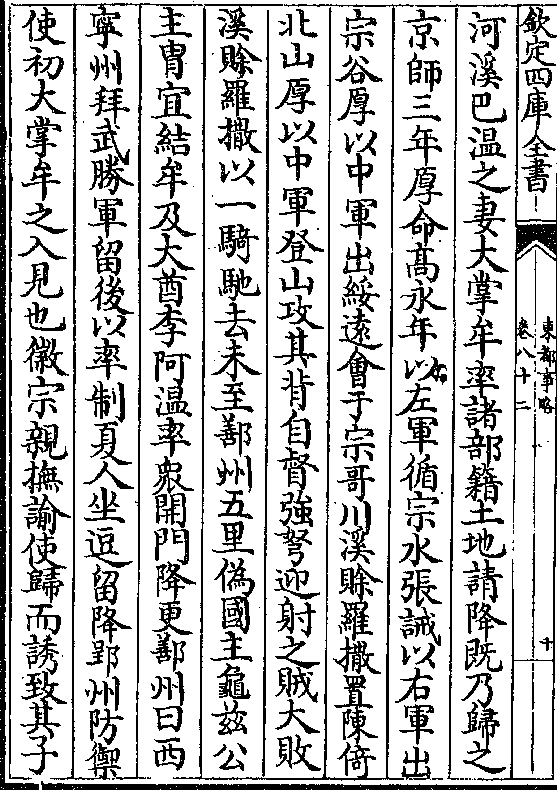 欽定四庫全書
東都事略
卷八十二
十
河溪巴温之妻大掌牟率諸部籍土地請降既乃歸之
京師三年厚命髙永年以左軍循宗水張誡以右軍出
宗谷厚以中軍出綏逺㑹于宗哥川溪賒羅撒置陳倚
北山厚以中軍登山攻其背自督強弩迎射之賊大敗
溪賒羅撒以一騎馳去未至鄯州五里偽國主龜兹公
主冑宜結牟及大酋李阿温率衆開門降更鄯州曰西
寜州拜武勝軍留後以率制夏人坐逗留降郢州防禦
使初大掌牟之入見也徽宗親撫諭使歸而誘致其子